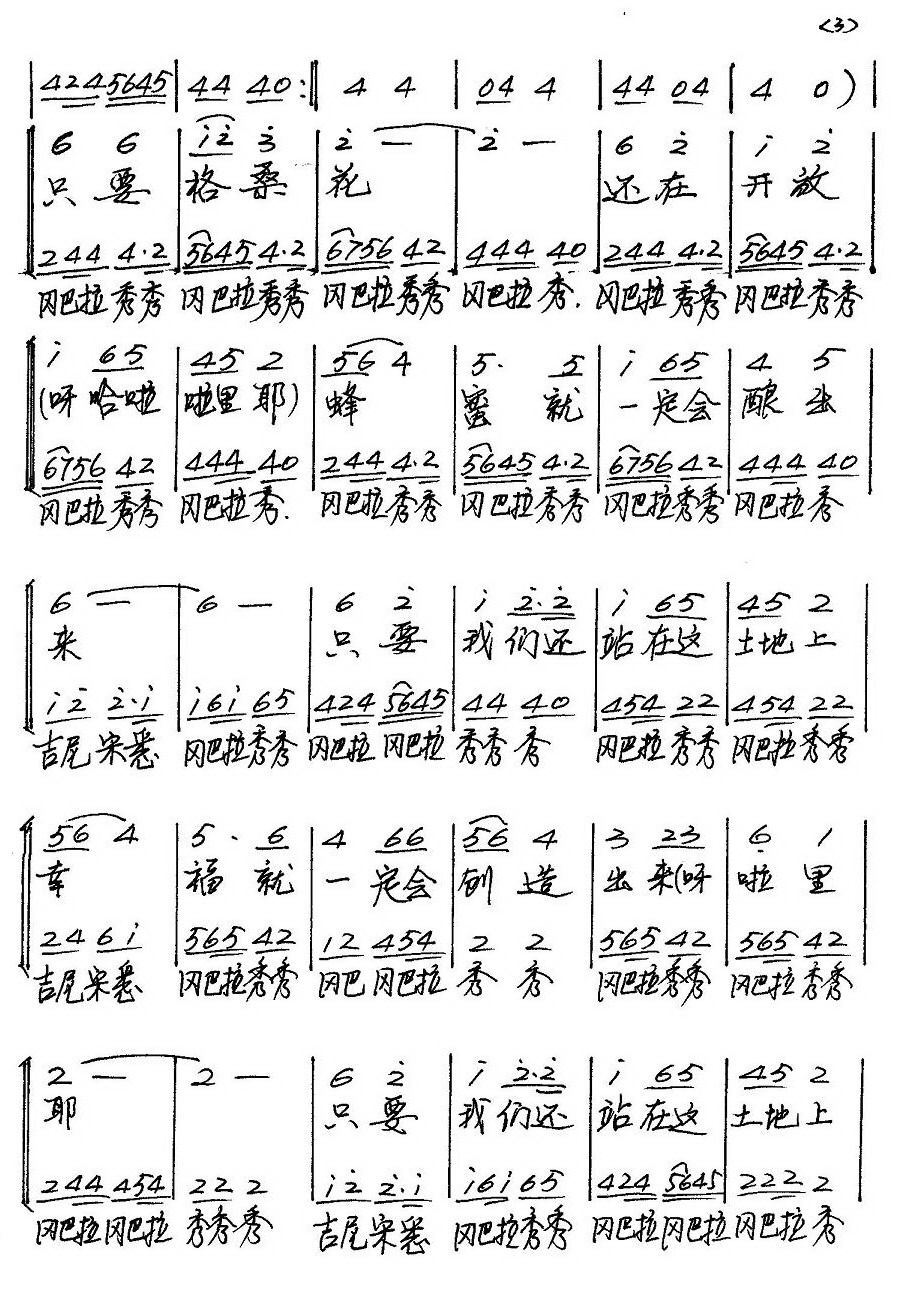 <3>
| 424 5645 | 44 40 :‖ 4 4 | 04 4 | 44 04 | 4 0 ) |
6 6 | i̇ 2̇ 3̇ | 2̇ — | 2̇ — | 6 2̇ | i̇ 2̇
只 要 格 桑 花 还 在 开 放
244 4·2 | 5645 4·2 | 6756 42 | 444 40 | 244 4·2 | 5645 4·2
冈巴拉 秀秀 冈巴拉秀秀 冈巴拉秀秀 冈巴拉 秀. 冈巴拉 秀秀 冈巴拉秀秀
i̇ 65 | 45 2 | 56 4 | 5· 5 | i̇ 65 | 4 5
(呀 哈啦 啦里 耶) 蜂 蜜 就 一 定会 酿 出
6756 42 | 444 40 | 244 4·2 | 5645 4·2 | 6756 42 | 444 40
冈巴拉秀秀 冈巴拉秀. 冈巴拉秀秀 冈巴拉秀秀 冈巴拉秀秀 冈巴拉秀
6 — | 6 — | 6 2̇ | i̇ 2̇·2̇ | i̇ 65 | 45 2
来 只 要 我 们还 站 在这 土地 上
i̇2̇ 2̇·i̇ | i̇6i̇ 65 | 424 5645 | 44 40 | 454 22 | 454 22
吉尾 宋 冈巴拉秀秀 冈巴拉 冈巴拉 秀秀 秀 冈巴拉 秀秀 冈巴拉 秀秀
56 4 | 5· 6 | 4 66 | 56 4 | 3 23 | 6̣ 1
幸 福 就 一 定会 创 造 出 来(呀 啦 里
24 6i̇ | 565 42 | 12 454 | 2 2 | 565 42 | 565 42
吉尾宋 冈巴拉秀秀 冈巴 冈巴拉 秀 秀 冈巴拉秀秀 冈巴拉秀秀
2 — | 2 — | 6 2̇ | i̇ 2̇·2̇ | i̇ 65 | 45 2
耶 只 要 我 们还 站 在这 土地 上
244 454 | 22 2 | i̇2̇ 2̇·i̇ | i̇6i̇ 65 | 424 5645 | 222 2
冈巴拉冈巴拉 秀秀 秀 吉尾宋 冈巴拉秀秀 冈巴拉冈巴拉 冈巴拉 秀